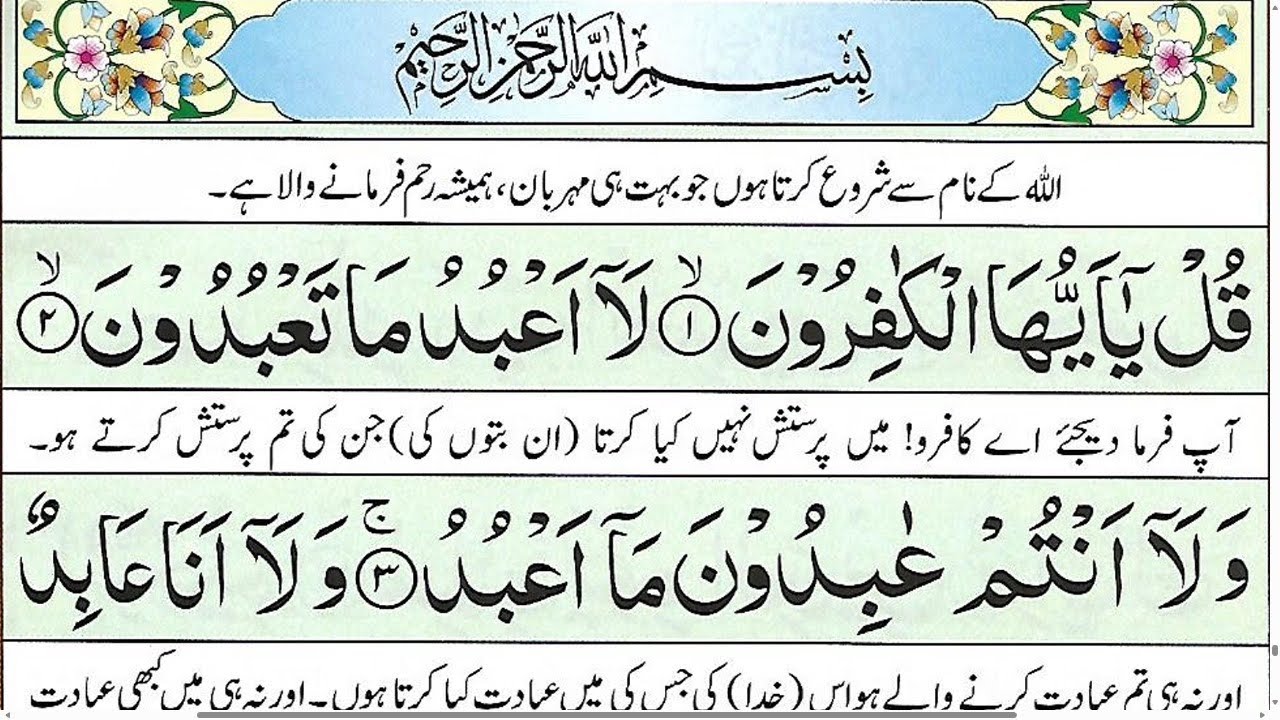 بِسْمِ اللهِ الرَّحْمٰنِ الرَّحِيْمِ
اللہ کے نام سے شروع کرتا ہوں جو بہت ہی مہربان، ہمیشہ رحم فرمانے والا ہے۔
قُلْ يٰٓاَيُّهَا الْكٰفِرُوْنَ ۙ﴿۱﴾ لَآ اَعْبُدُ مَا تَعْبُدُوْنَ ۙ﴿۲﴾
آپ فرما دیجئے اے کافرو! میں پرستش نہیں کیا کرتا (ان بتوں کی) جن کی تم پرستش کرتے ہو۔
وَلَآ اَنْتُمْ عٰبِدُوْنَ مَآ اَعْبُدُ ۚ﴿۳﴾ وَلَآ اَنَا عَابِدٌ
اور نہ ہی تم عبادت کرنے والے ہو اس (خدا) کی جس کی میں عبادت کیا کرتا ہوں۔ اور نہ ہی میں کبھی عبادت